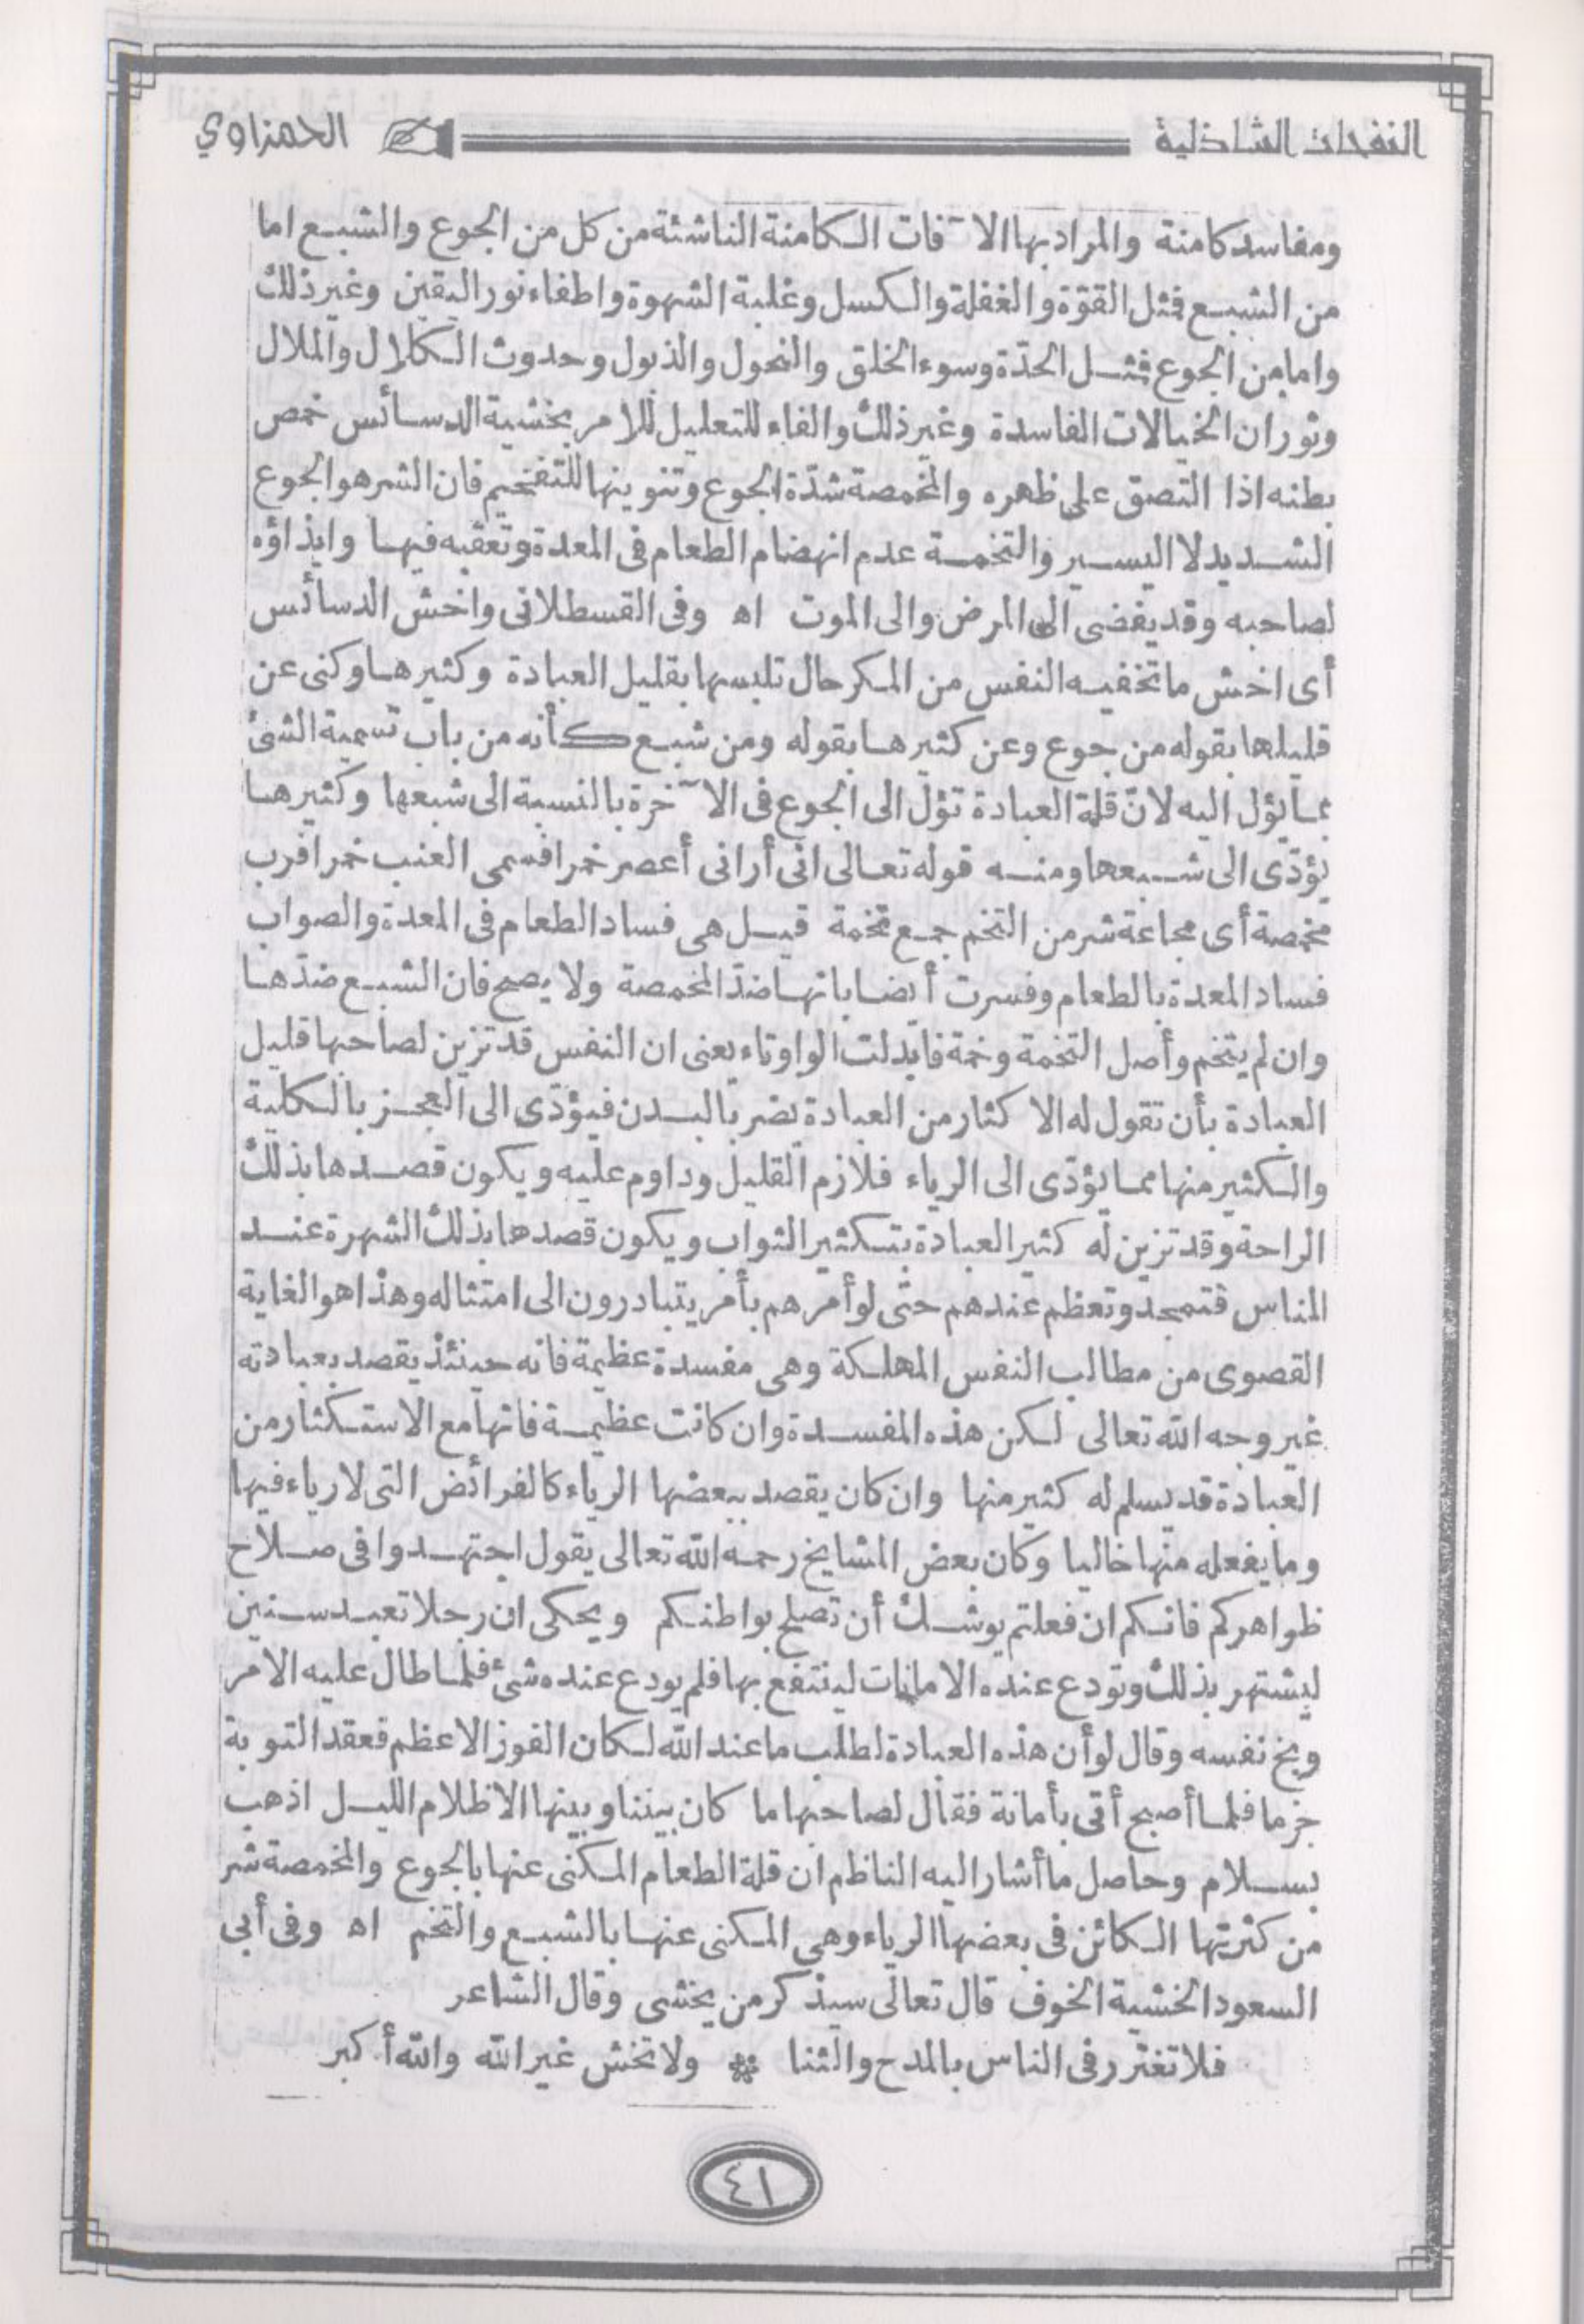 النفحات الشاذلية الحمزاوي
ومفاسد كامنة والمراد بها الآفات الكامنة الناشئة من كل من الجوع والشبع اما
من الشبع فثل القوّة والغفلة والكسل وغلبة الشهوة واطفاء نور اليقين وغير ذلك
وامامن الجوع فثل الحدّة وسوء الخلق والنحول والذبول وحدوث الكلال والملال
وثوران الخيالات الفاسدة وغير ذلك والفاء للتعليل للامر بخشية الدسائس خمص
بطنه اذا التصق على ظهره والمخمصة شدّة الجوع وتنوينها للتفخيم فان الشر هو الجوع
الشديد لا اليسير والتخمة عدم انهضام الطعام فى المعدة وتعقبه فيها وايذاؤه
لصاحبه وقد يفضى الى المرض والى الموت اه وفى القسطلانى واخش الدسائس
أى اخش ما تخفيه النفس من المكر حال تلبسها بقليل العبادة وكثيرها وكنى عن
قليلها بقوله من جوع وعن كثيرها بقوله ومن شبع كأنه من باب تسمية الشئ
بما يؤل اليه لانّ قلة العبادة تؤل الى الجوع فى الآخرة بالنسبة الى شبعها وكثيرها
يؤدّى الى شبعها ومنه قوله تعالى انى أرانى أعصر خمرا فسمى العنب خمرا فرب
مخمصة أى مجاعة شر من التخم جمع تخمة قيل هى فساد الطعام فى المعدة والصواب
فساد المعدة بالطعام وفسرت أيضا بانها ضدّ المخمصة ولا يصح فان الشبع ضدّها
وان لم يتخم وأصل التخمة وخمة فابدلت الواو تاء يعنى ان النفس قد تزين لصاحبها قليل
العبادة بأن تقول له الاكثار من العبادة يضر بالبدن فيؤدّى الى العجز بالكلية
والكثير منها مما يؤدّى الى الرياء فلازم القليل وداوم عليه ويكون قصدها بذلك
الراحة وقد تزين له كثير العبادة بتكثير الثواب ويكون قصدها بذلك الشهرة عند
الناس فتمجد وتعظم عندهم حتى لو أمرهم بأمر يتبادرون الى امتثاله وهذا هو الغاية
القصوى من مطالب النفس المهلكة وهى مفسدة عظيمة فانه حينئذ يقصد بعبادته
غير وجه الله تعالى لكن هذه المفسدة وان كانت عظيمة فانها مع الاستكثار من
العبادة قد يسلم له كثير منها وان كان يقصد ببعضها الرياء كالفرائض التى لا رياء فيها
وما يفعله منها خاليا وكان بعض المشايخ رحمه الله تعالى يقول اجتهدوا فى صلاح
ظواهركم فانكم ان فعلتم يوشك أن تصلح بواطنكم ويحكى ان رجلا تعبد سنين
ليشتهر بذلك وتودع عنده الامانات لينتفع بها فلم يودع عنده شئ فلما طال عليه الامر
وبخ نفسه وقال لو أن هذه العبادة لطلب ما عند الله لكان الفوز الاعظم فعقد التوبة
جزما فلما أصبح أتى بأمانة فقال لصاحبها ما كان بيننا وبينها الا ظلام الليل اذهب
بسلام وحاصل ما أشار اليه الناظم ان قلة الطعام المكنى عنها بالجوع والمخمصة شر
من كثرتها الكائن فى بعضها الرياء وهى المكنى عنها بالشبع والتخم اه وفى أبى
السعود الخشية الخوف قال تعالى سيذكر من يخشى وقال الشاعر
فلا تغترر فى الناس بالمدح والثنا * ولا تخش غير الله والله أكبر
٤١